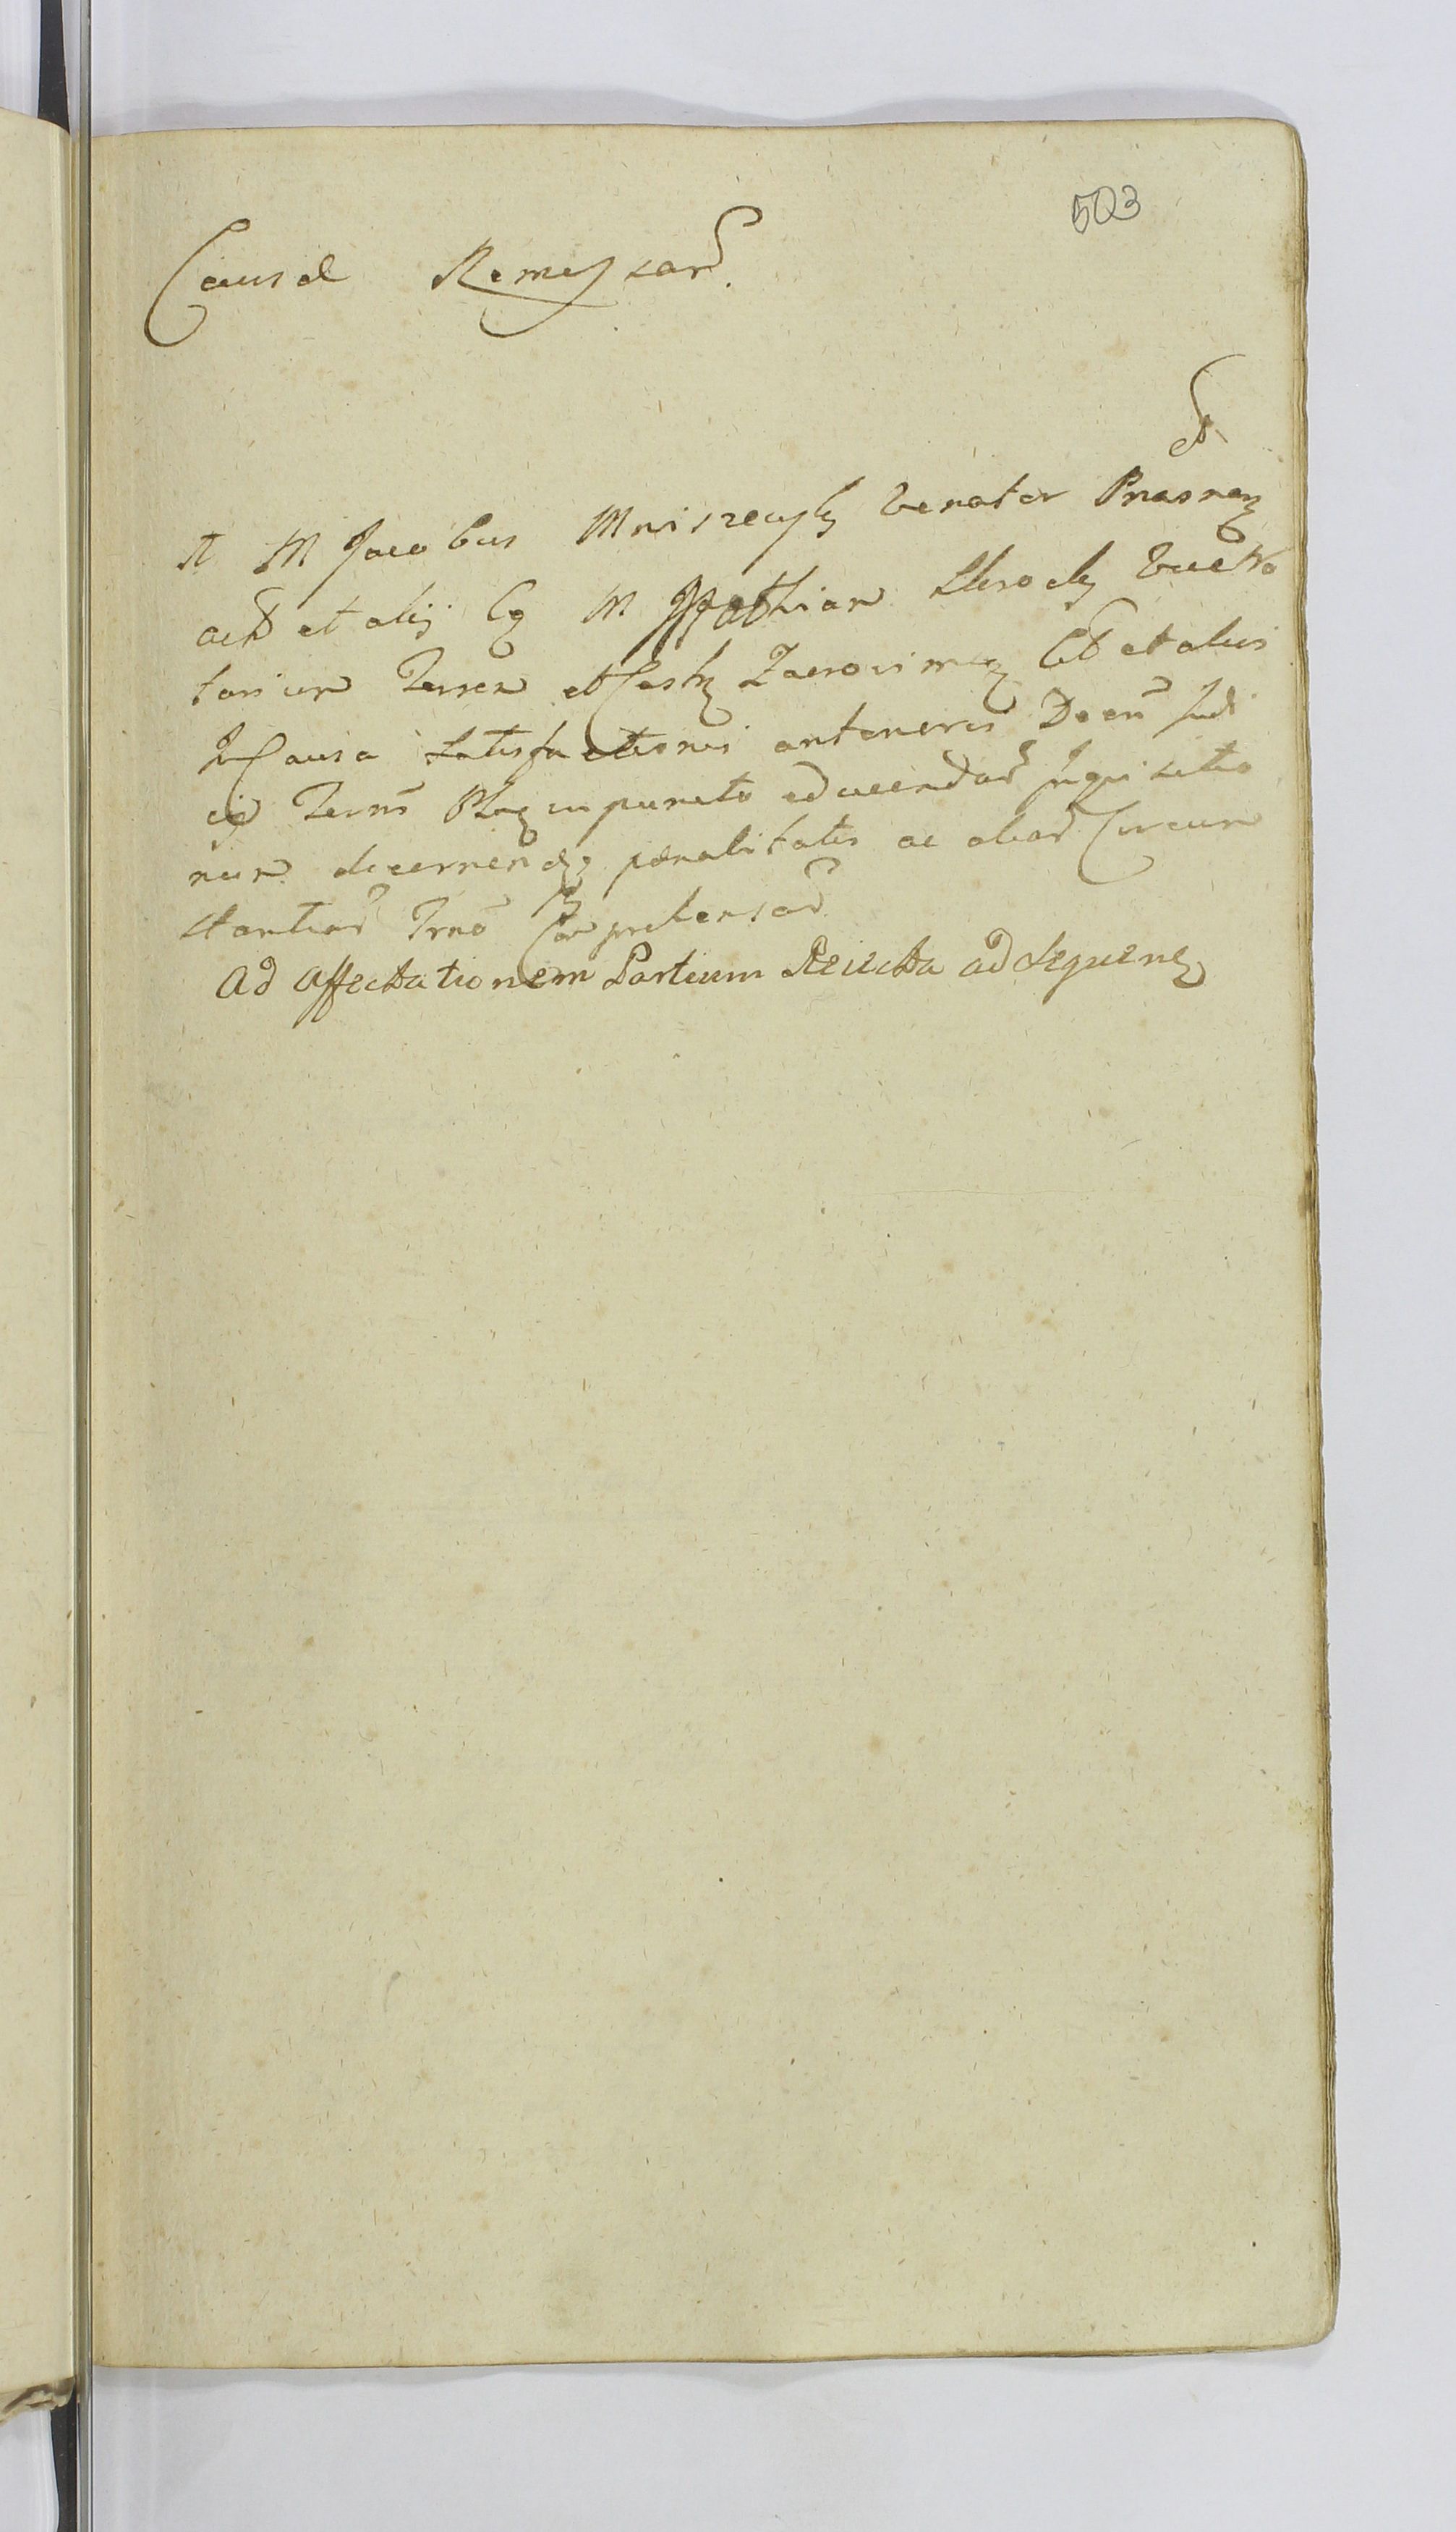 503
Causae Remyssar
M Jacobus Mniszewsky Venator Prasnen
act et alij Cq M Mathiam Skrocky Vice No
tarium Terren et Castr Zacrocimen Ct et alios
In Causa Satisfactionis anterioris Decri Judi
cij Terris in puncto educendar Inquisitio
num decernendq paenalitatis ac aliar Circum
stantiar Trno Comprehensar
Ad Affectationem Partium Reiecta ad Sequen